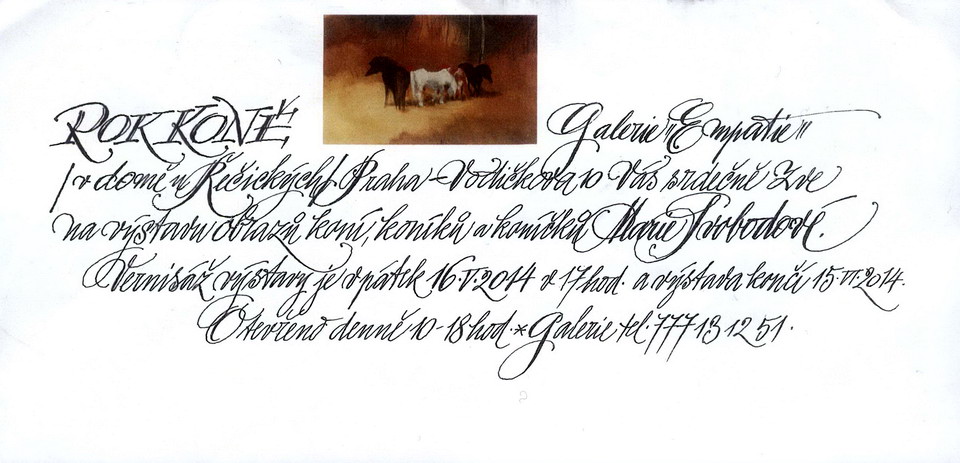 ROK KONĚ Galerie "Empatie"
/v domě u Řečických/ Praha - Vodičkova 10 Vás srdečně zve
na výstavu obrazů koní, koníků a koníčků Marie Svobodové.
Vernisáž výstavy je v pátek 16.V.2014 v 17 hod. a výstava končí 15.VI.2014.
Otevřeno denně 10-18 hod. * Galerie tel. 777 13 12 51.